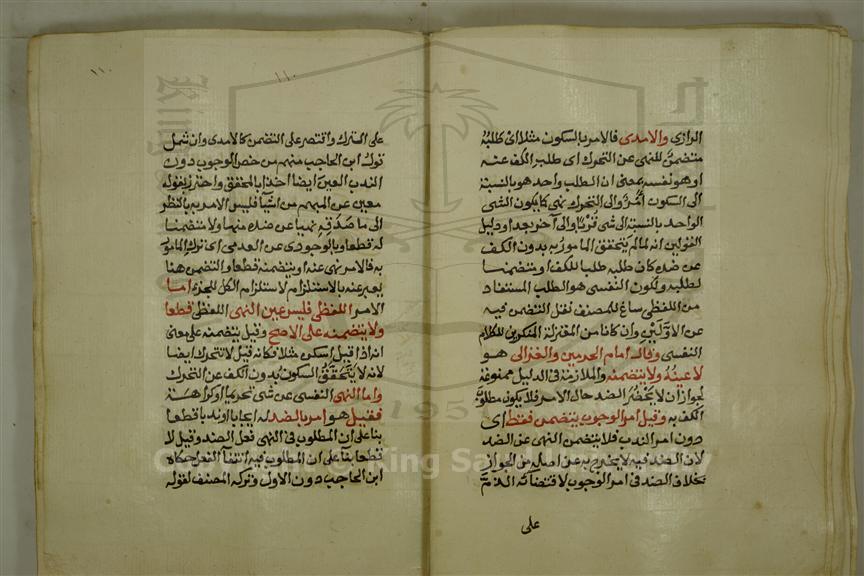 الرازي والامدي فالامر بالسكون مثلا اى طلبه
متضمن للنهي عن التحرك اى طلب الكف عنه
او هو نفسه بمعنى ان الطلب واحد هو بالنسبة
الى السكون أمر والى التحرك نهي كما يكون الشى
الواحد بالنسبة الى شى قربا والى آخر بعدا ودليل
القولين انه لما لم يتحقق المامور به بدون الكف
عن ضده كان طلبه طلبا للكف او متضمنا
لطلبه ولكون النفسي هو الطلب المستفاد
من اللفظي ساغ للمصنف نقل التضمن فيه
عن الاولين وان كانا من المعتزلة المنكرين للكلام
النفسي وقال امام الحرمين والغزالي هو
لا عينه ولا يتضمنه والملازمة في الدليل ممنوعة
لجواز ان لا يحضر الضد حال الامر فلا يكون مطلوب
الكف به وقيل امر الوجوب يتضمن فقط اى
دون امر الندب فلا يتضمن النهى عن الضد
لان الضد فيه لا يخرج به عن اصله من الجواز
بخلاف الضد في امر الوجوب لاقتضائه الذم
على
١١٠
على الترك واقتصر على التضمن كالامدى وان شمل
قول ابن الحاجب منهم من خص الوجوب دون
الندب العين ايضا اخذا بالمحقق واحترز بقوله
معين عن المبهم من اشيا فليس الامر به بالنظر
الى ما صدقه نهيا عن ضده منها ولا متضمنا
له قطعا وبالوجودي عن العدمي اى ترك المامور
به فالامر نهى عنه او يتضمنه قطعا والتضمن هنا
يعبر عنه بالاستلزام لاستلزام الكل للجزء اما
الامر اللفظي فليس عين النهى اللفظي قطعا
ولا يتضمنه على الاصح وقيل يتضمنه على معنى
انه اذا قيل اسكن مثلا فكانه قيل لا تتحرك ايضا
لانه لا يتحقق السكون بدون الكف عن التحرك
واما النهى النفسى عن شى تحريما او كراهة
فقيل هو امر بالضد له ايجابا او ندبا قطعا
بنا على ان المطلوب في النهى فعل الضد وقيل لا
قطعا بنا على ان المطلوب فيه انتفا الفعل حكاه
ابن الحاجب دون الاول وتركه المصنف لقوله
King Saud University
1957